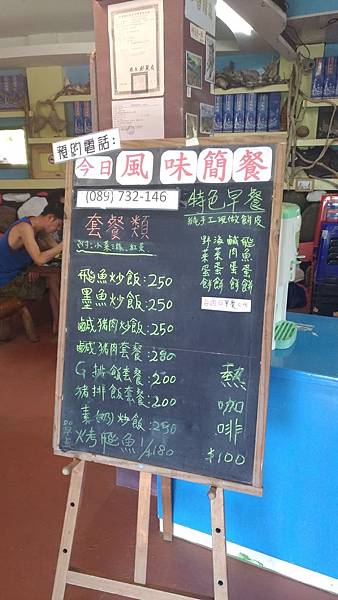 預約電話:
今日風味簡餐
(089) 732-146
特色早餐
純手工現做餅皮
套餐類
附:小菜、湯、紅茶
野菜蛋餅
海菜蛋餅
鹹肉蛋餅
飛魚蛋餅
飛魚炒飯:250
墨魚炒飯:250
鹹豬肉炒飯:250
鹹豬肉套餐:280
G排飯套餐:200
豬排飯套餐:200
素(奶)炒飯:250
烤飛魚1/$180
熱咖啡
$100